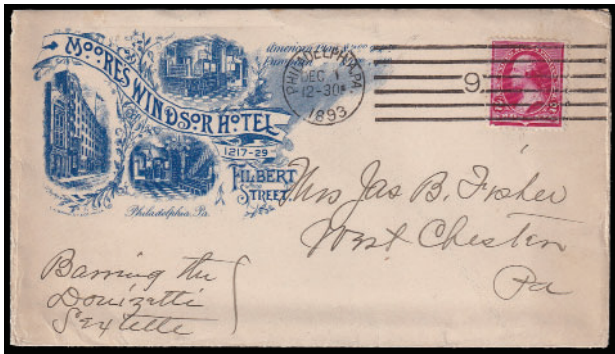 MOORE'S WINDSOR HOTEL
American Plan
1217-29
FILBERT
STREET
Philadelphia, Pa.
PHILADELPHIA, PA.
DEC 1
12-30P
1893
9
Mrs Jas B. Fisher
West Chester
Pa
Barring the
Donizetti
Sextette